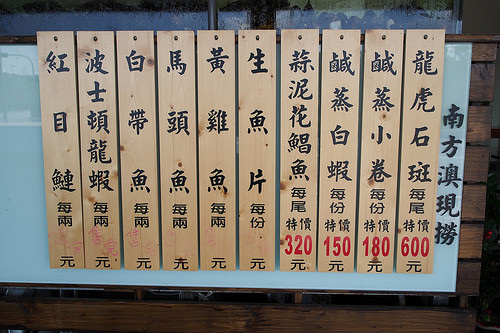 南方澳現撈
龍虎石斑每尾特價600元
鹹蒸小卷每份特價180元
鹹蒸白蝦每份特價150元
蒜泥花鯧魚每尾特價320元
生魚片每份元
黃雞魚每兩元
馬頭魚每兩元
白帶魚每兩元
波士頓龍蝦每兩元
紅目鰱每兩元